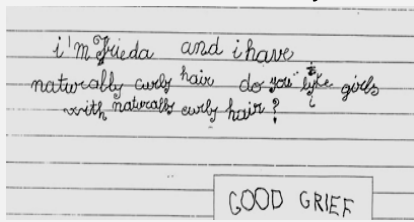 i'm Frieda and i have
naturally curly hair do you like girls
with naturally curly hair?
GOOD GRIEF